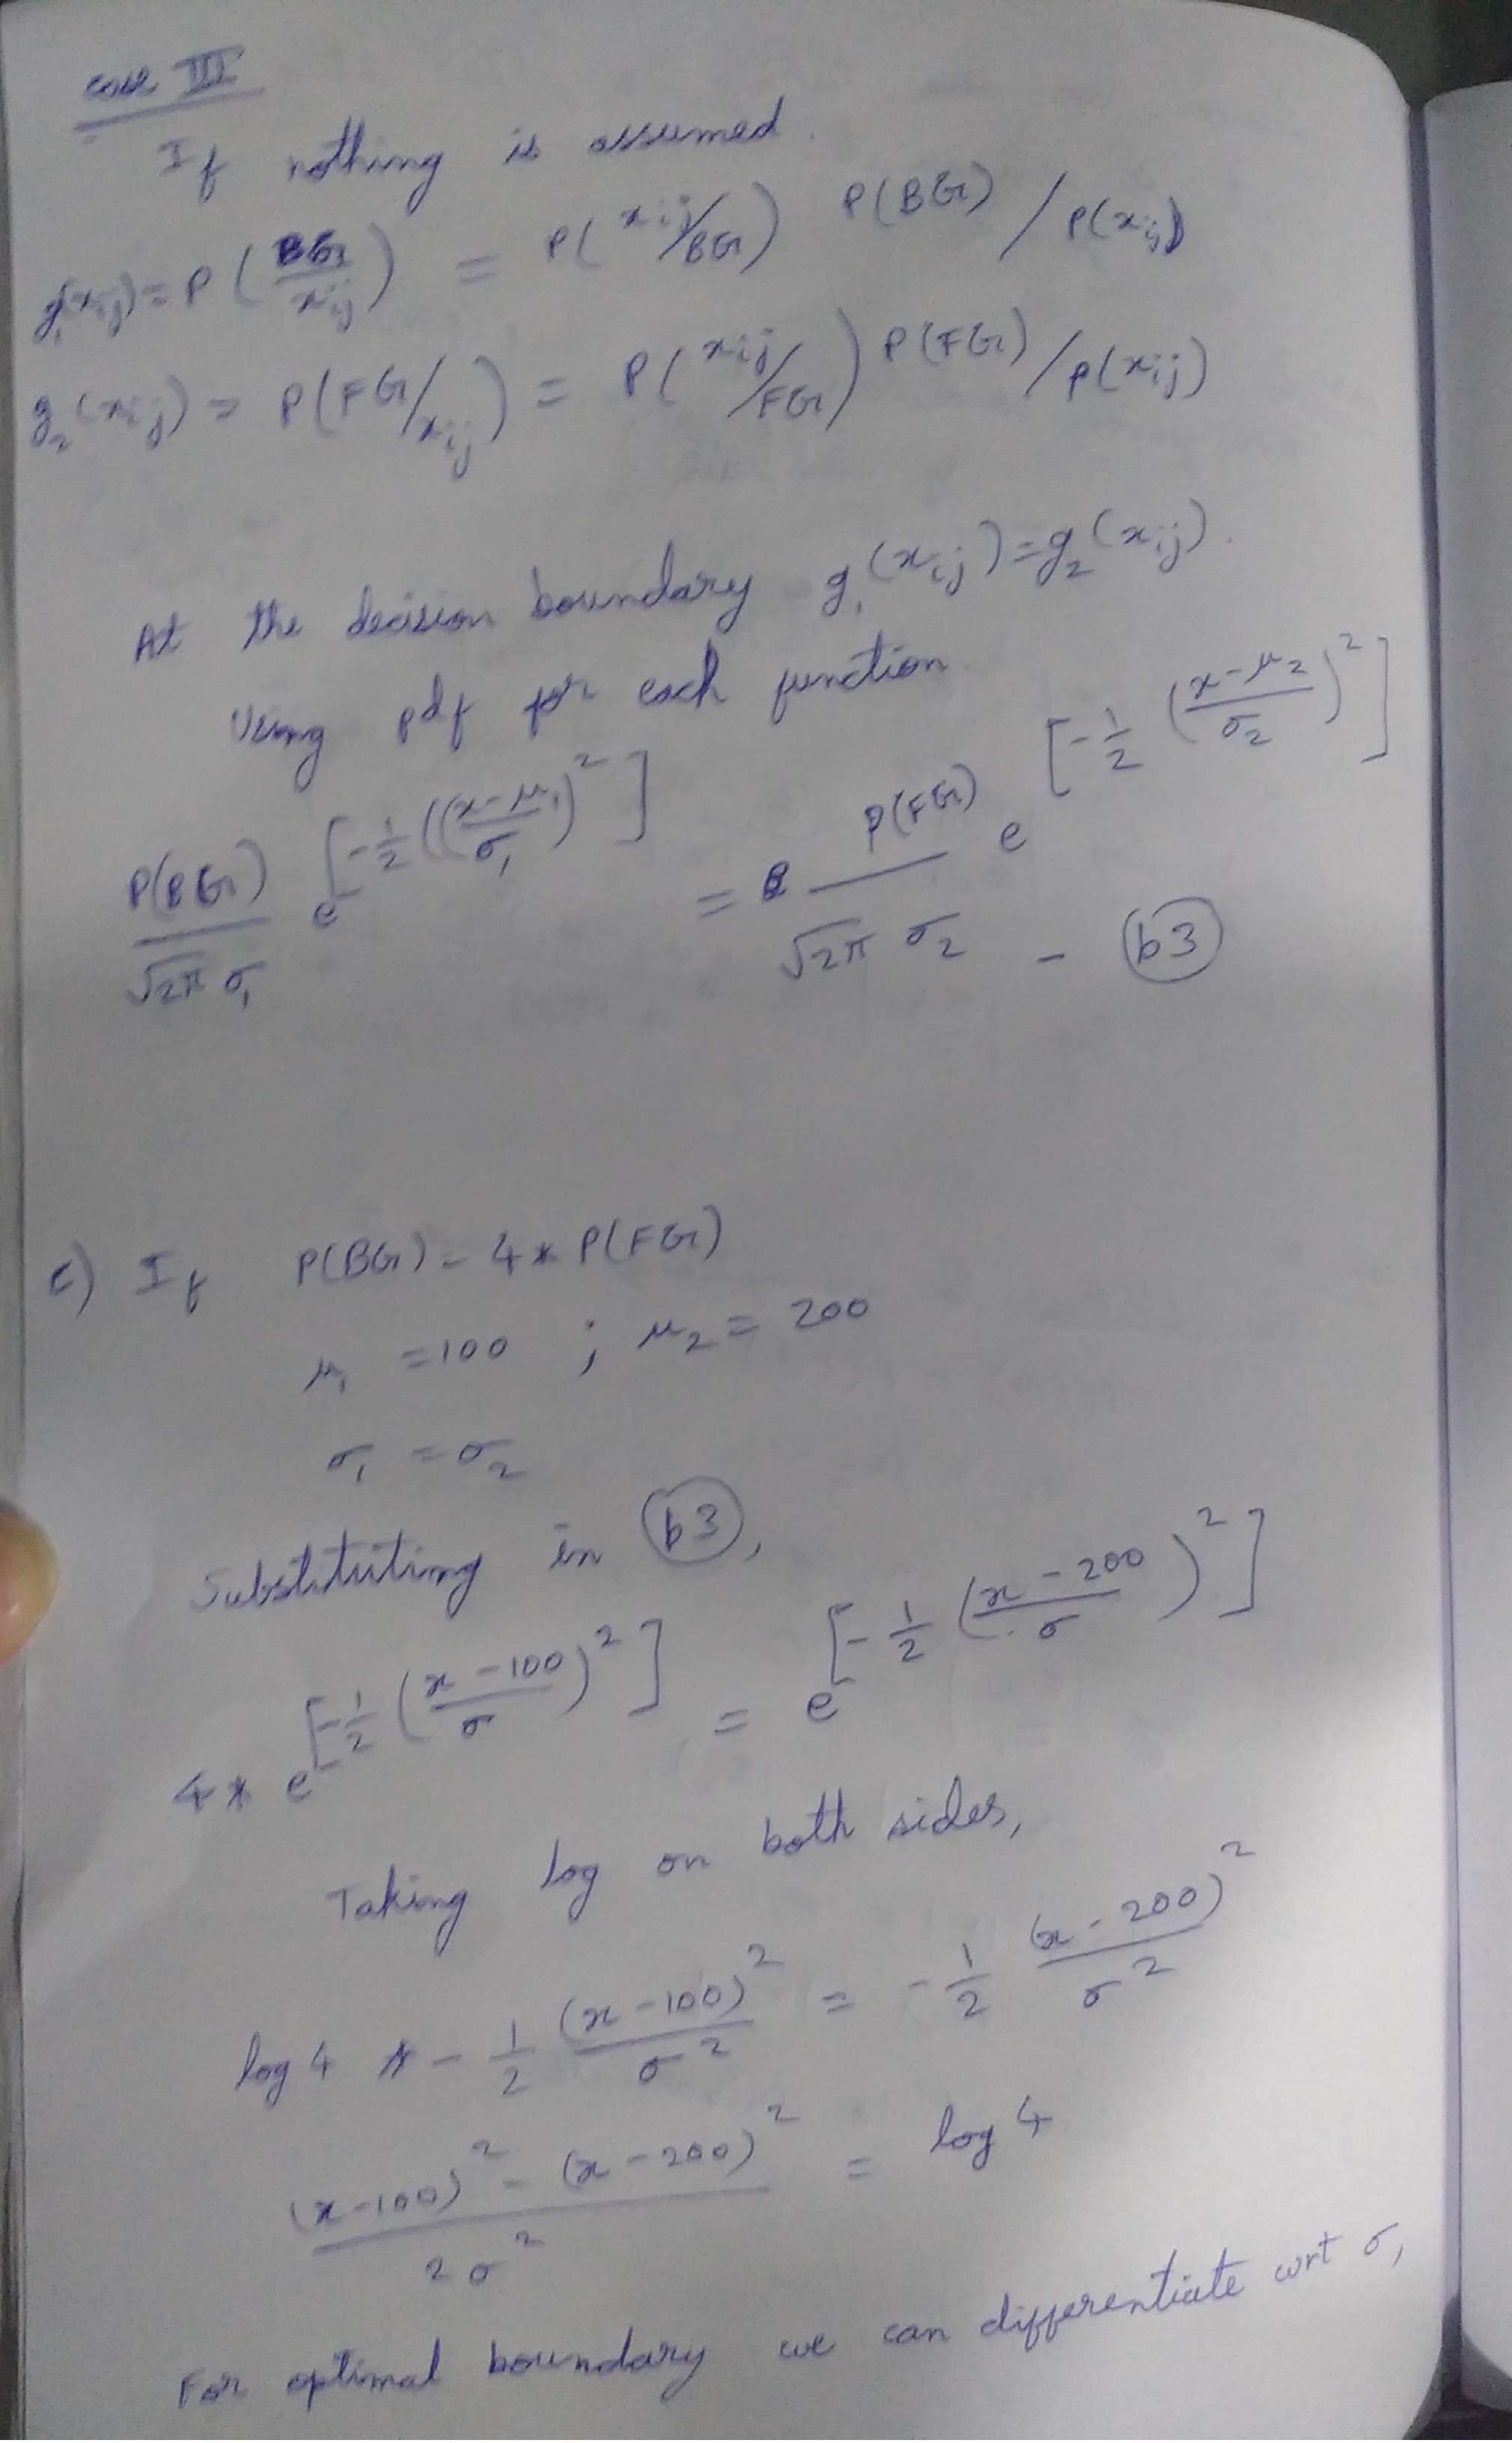 case III
If nothing is assumed.
g₁(xᵢⱼ) = P(BG/xᵢⱼ) = P(xᵢⱼ/BG) P(BG) / P(xᵢⱼ)
g₂(xᵢⱼ) = P(FG/xᵢⱼ) = P(xᵢⱼ/FG) P(FG) / P(xᵢⱼ)
At the decision boundary g₁(xᵢⱼ) = g₂(xᵢⱼ).
Using pdf for each function
P(BG)/(√2π σ₁) e^[-1/2 (((x-μ₁)/σ₁)²] = P(FG)/(√2π σ₂) e^[-1/2 ((x-μ₂)/σ₂)²] - (b3)
c) If P(BG) = 4 * P(FG)
μ₁ = 100 ; μ₂ = 200
σ₁ = σ₂
Substituting in (b3),
4 * e^[-1/2 ((x-100)/σ)²] = e^[-1/2 ((x-200)/σ)²]
Taking log on both sides,
log 4 - 1/2 (x-100)²/σ² = -1/2 (x-200)²/σ²
((x-100)² - (x-200)²)/2σ² = log 4
For optimal boundary we can differentiate wrt σ,